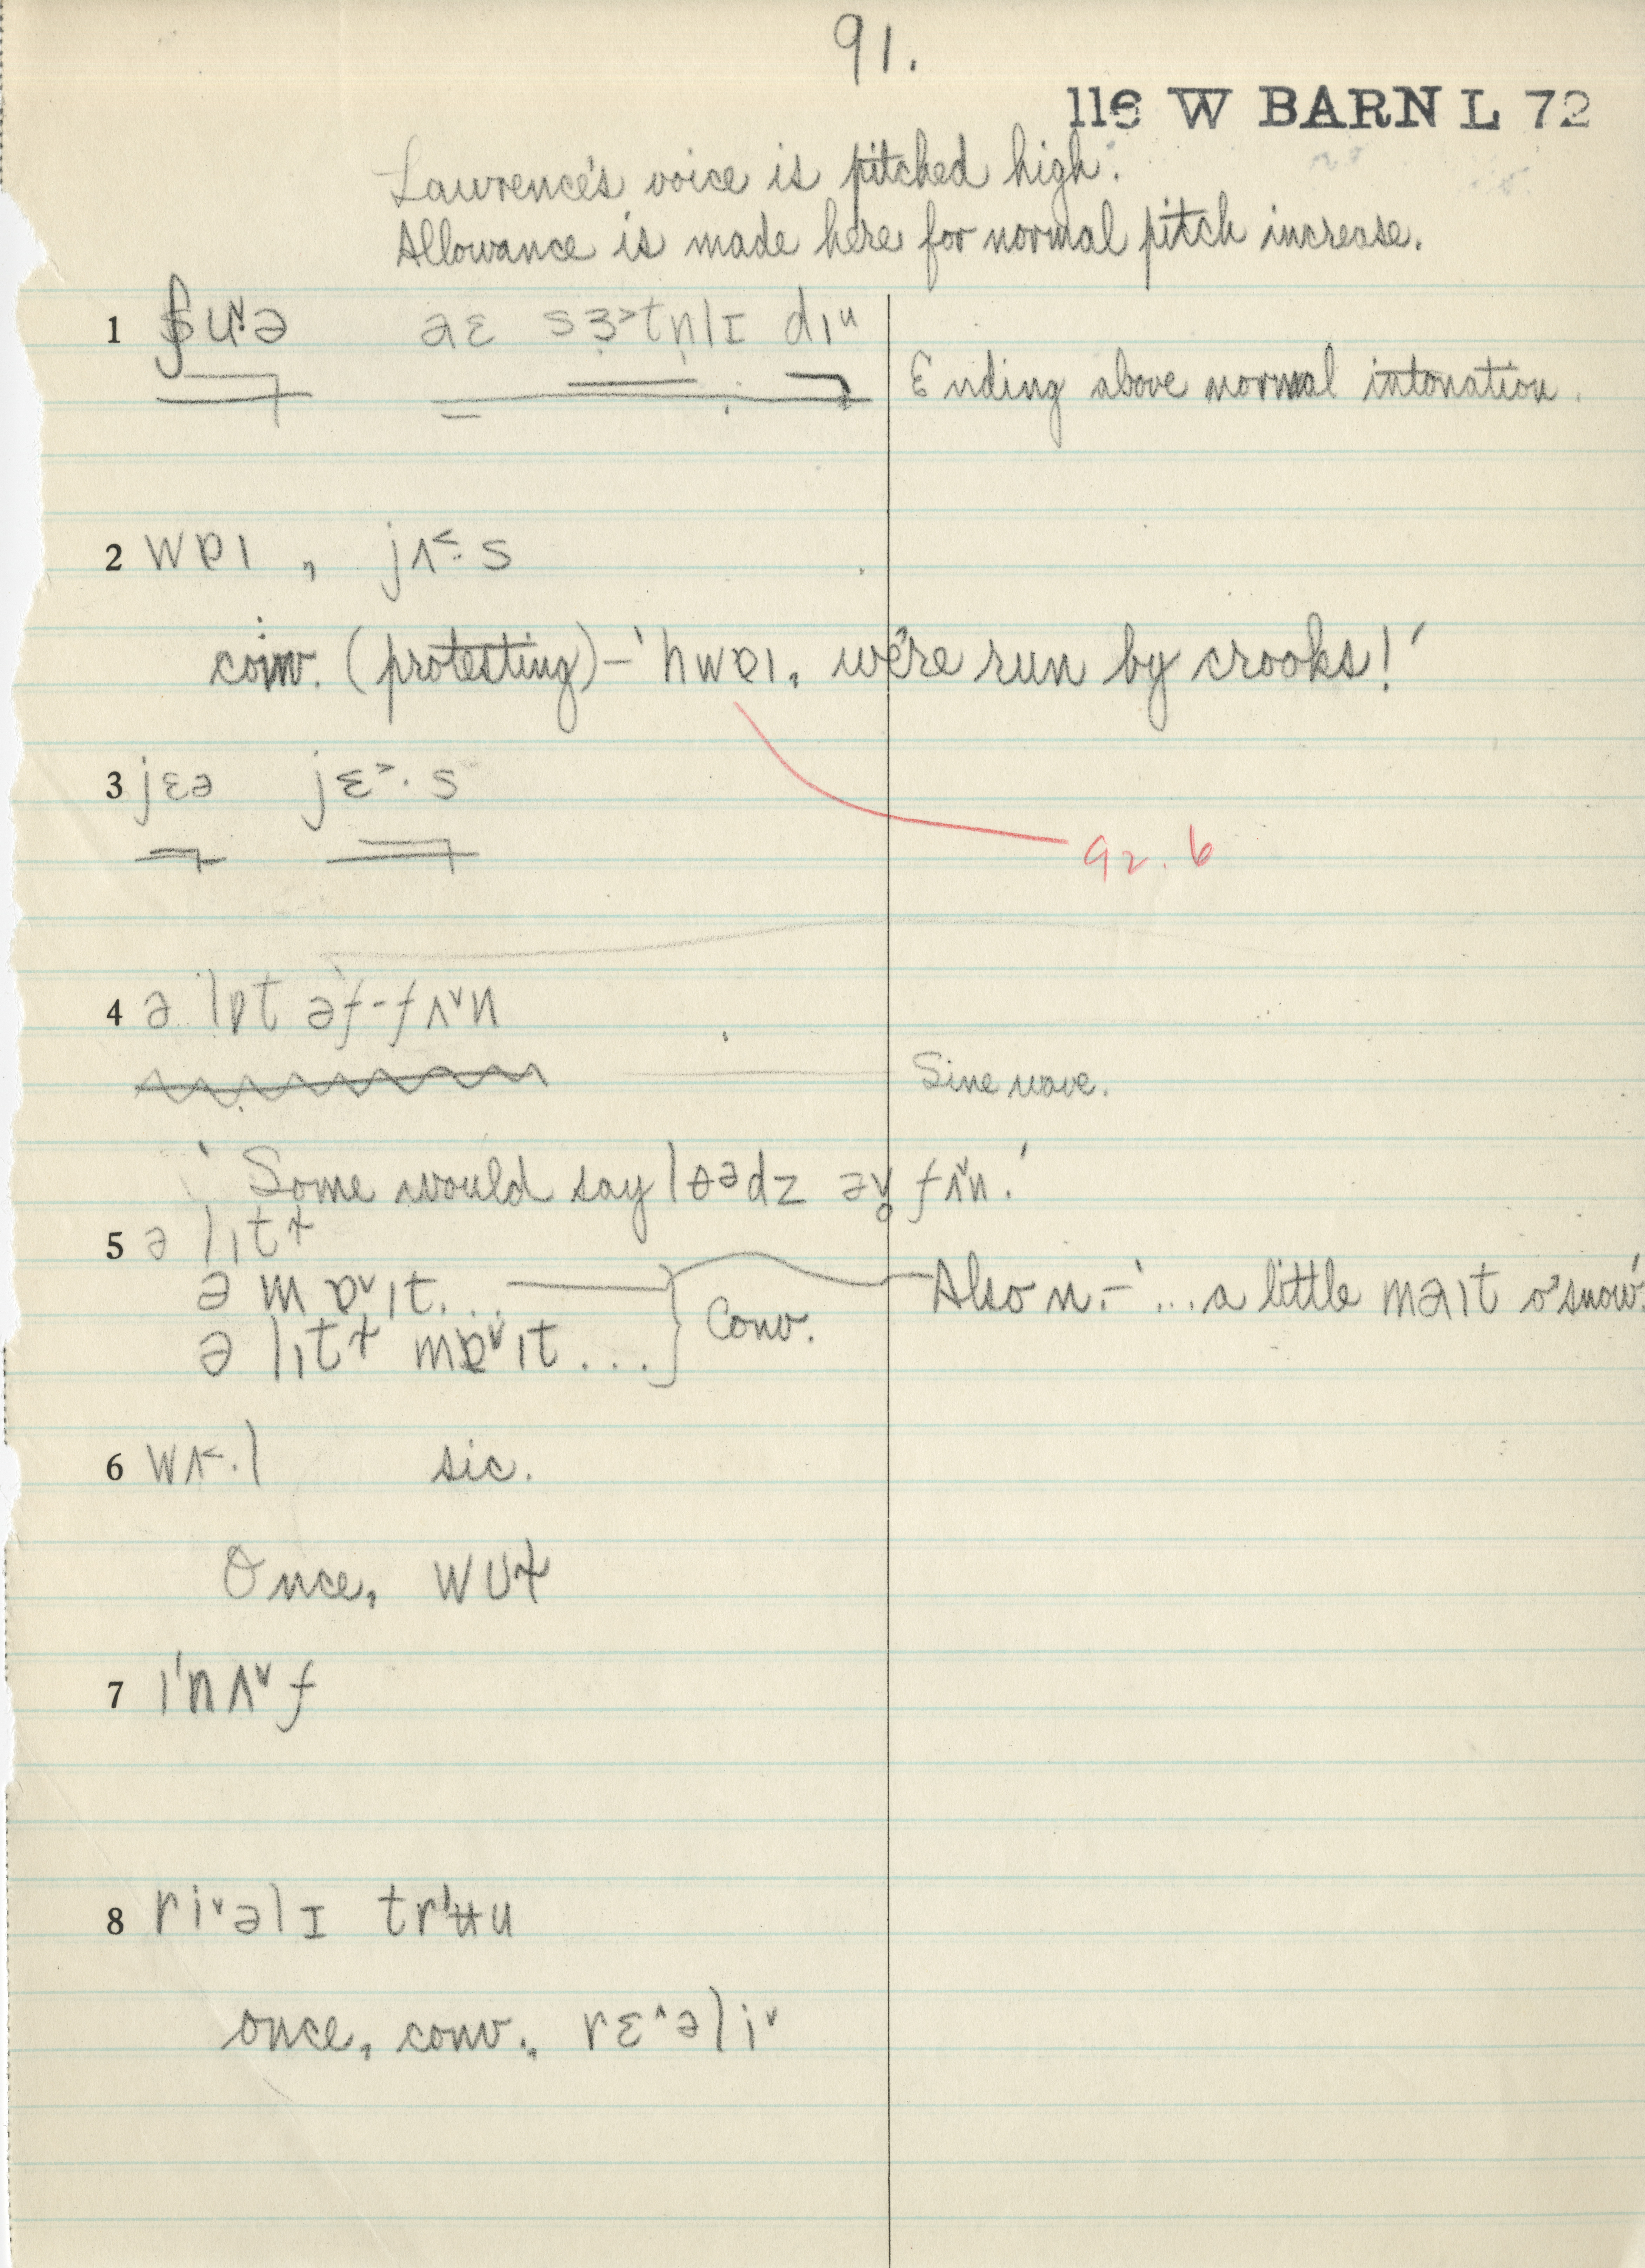 91.
116 W BARN L 72
Lawrence's voice is pitched high.
Allowance is made here for normal pitch increase.
1 ʃu˅ə aɛ sɜ˃tn̩lɪ dɪᵘ
Ending above normal intonation.
2 wɐɪ, jʌ˂·s
conv. (protesting) – 'hwɐɪ, we're run by crooks!'
3 jɛə jɛ˃·s
92.6
4 ə lɒt əf-fʌ˅n
Sine wave.
'Some would say lɵədz əv̥ fʌ˅n.'
5 ə lɪtɫ
ə mɐ˅ɪt...
ə lɪtɫ mɐ˅ɪt...
Conv.
Also n. – '...a little məɪt o' snow.'
6 wʌ˂·l sic.
Once, wʊɫ
7 ɪ'nʌ˅f
8 ri˅əlɪ trʉu
once, conv., rɛ^əli˅